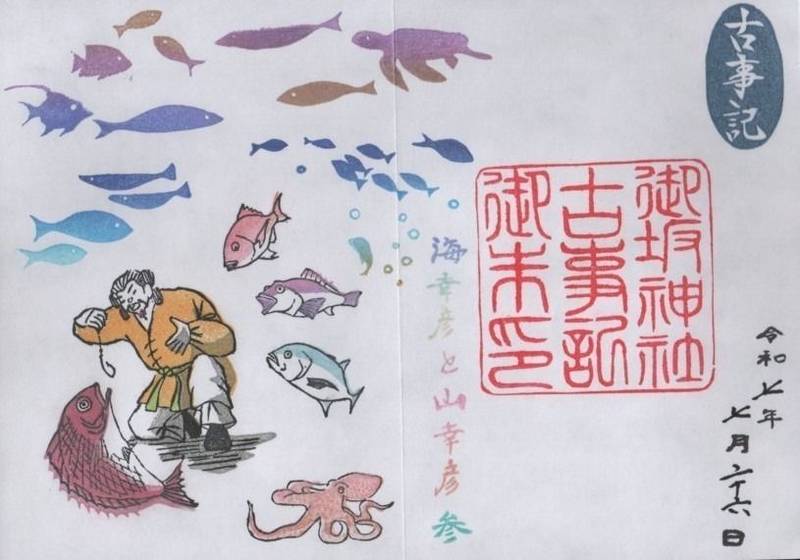 古事記
御坂神社
古事記
御朱印
令和七年
七月二十六日
海幸彦と山幸彦 参